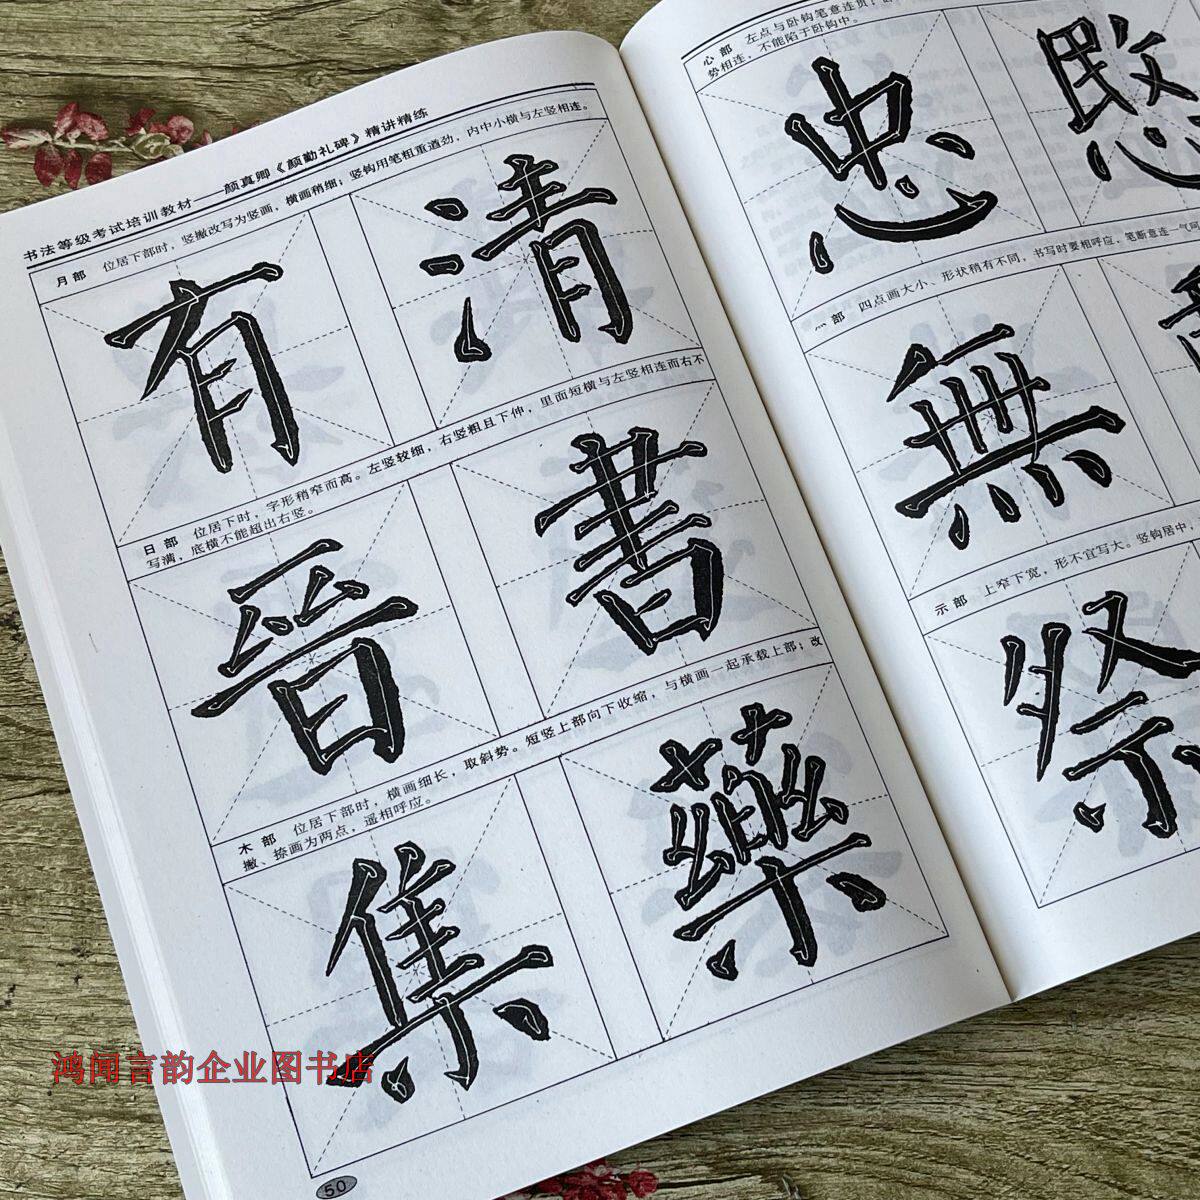 书法等级考试培训教材——颜真卿《颜勤礼碑》精讲精练
月部 位居下部时，竖撇改写为竖画，横画稍细；竖钩用笔粗重遒劲，内中小横与左竖相连。
有 清
日部 位居下时，字形稍窄而高。左竖较细，右竖粗且下伸，里面短横与左竖相连而右不
写满，底横不能超出右竖。
晉 書
木部 位居下部时，横画细长，取斜势。短竖上部向下收缩，与横画一起承载上部；改
撇、捺画为两点，遥相呼应。
集 藥
50
心部 左点与卧钩笔意连贯；
势相连，不能陷于卧钩中。
忠 愍
灬部 四点画大小、形状稍有不同，书写时要相呼应，笔断意连一气呵
無
示部 上窄下宽，形不宜写大。竖钩居中
祭
鸿闻言韵企业图书店